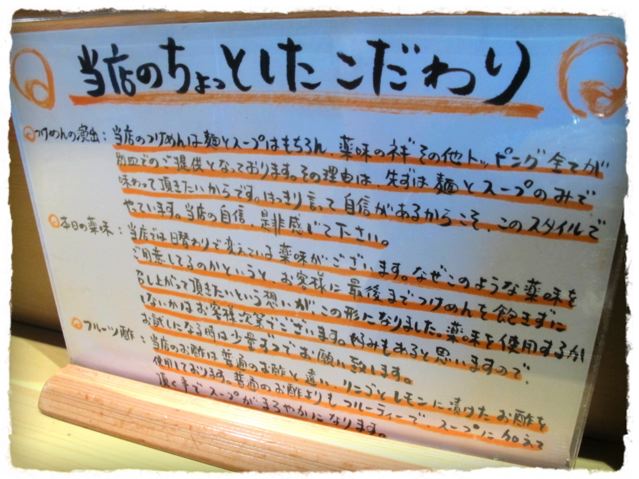 当店のちょっとしたこだわり
つけめんの演出：当店のつけめんは麺とスープはもちろん、薬味のネギその他トッピング全てが
別皿でのご提供となっております。その理由は、先ずは麺とスープのみで
味わって頂きたいからです。はっきり言って自信があるからこそ、このスタイルで
やています。当店の自信、是非感じて下さい。
本日の薬味：当店では日替わりで変えている薬味がございます。なぜこのような薬味を
ご用意してるのかというと、お客様に最後までつけめんを飽きずに
召し上がって頂きたいという想いが、この形になりました。薬味を使用するか
しないかはお客様次第でございます。好みもあると思いますので、
お試しになる時は少量ずつでお願い致します。
フルーツ酢：当店のお酢は普通のお酢と違い、リンゴとレモンに漬けたお酢を
使用しております。普通のお酢よりもフルーティーで、スープに加えて
頂く事でスープがまろやかになります。